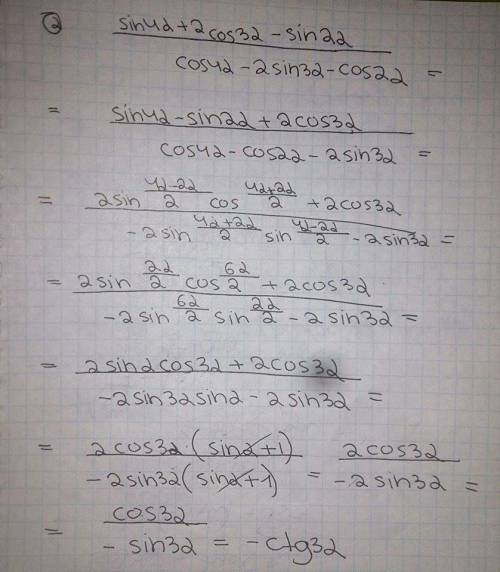 ② (sin4α + 2cos3α - sin2α)/(cos4α - 2sin3α - cos2α) =
= (sin4α - sin2α + 2cos3α)/(cos4α - cos2α - 2sin3α) =
= (2sin (4α-2α)/2 cos (4α+2α)/2 + 2cos3α)/(-2sin (4α+2α)/2 sin (4α-2α)/2 - 2sin3α) =
= (2sin 2α/2 cos 6α/2 + 2cos3α)/(-2sin 6α/2 sin 2α/2 - 2sin3α) =
= (2sinαcos3α + 2cos3α)/(-2sin3αsinα - 2sin3α) =
= (2cos3α·(sinα+1))/(-2sin3α(sinα+1)) = (2cos3α)/(-2sin3α) =
= (cos3α)/(-sin3α) = -ctg3α